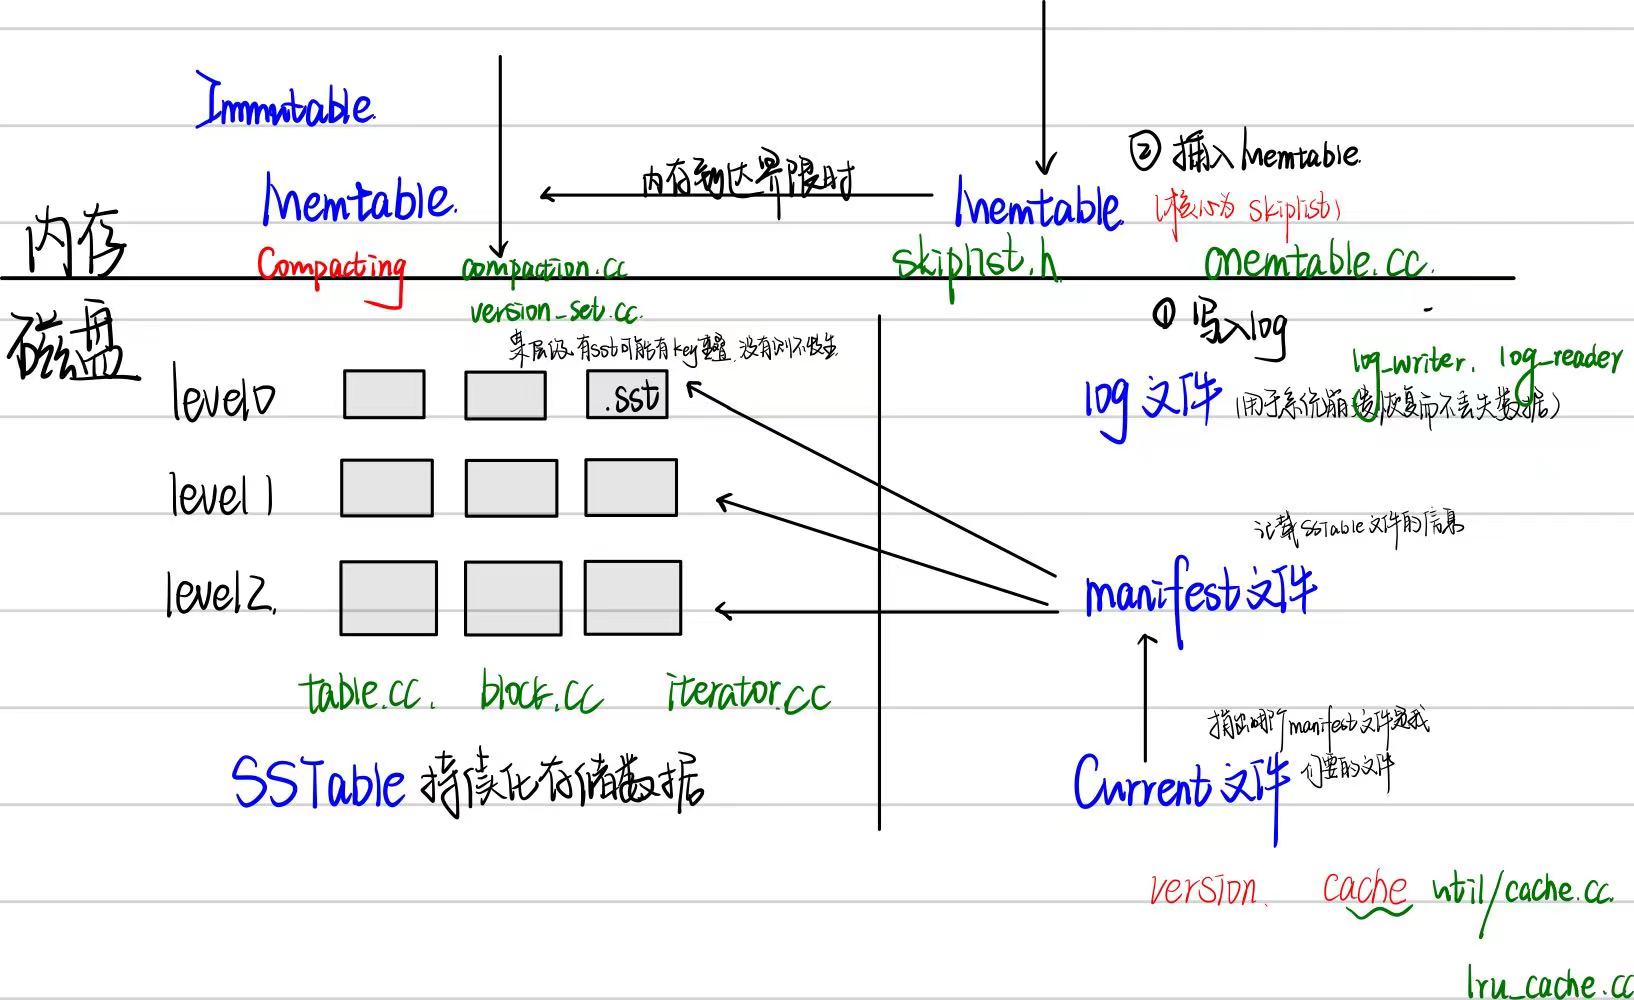 Immutable
Memtable.
内存到达界限时
Memtable.
② 插入Memtable.
(核心为 skiplist)
内存
Compacting
compaction.cc
skiplist.h
memtable.cc.
磁盘
version_set.cc.
某层级,有sst可能有key重叠,没有则不发生
① 写入log
log_writer. log_reader
log文件 (用于系统崩溃恢复而不丢失数据)
level0
.sst
level1
记载SSTable文件的信息
level2.
manifest文件
table.cc. block.cc iterator.cc
指出哪个manifest文件是我
们要的文件
SSTable 持续化存储数据
Current文件
version. cache util/cache.cc.
lru_cache.cc